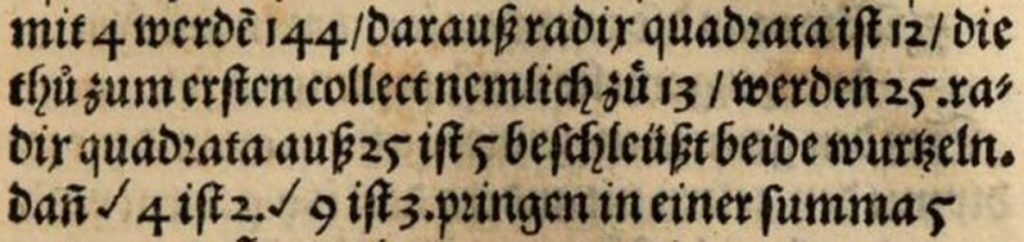 mit 4 werdē 144/darauß radix quadꝛata iſt 12/ die
thů zum erſten collect nemlich zů 13 / werden 25.ra⸗
dix quadꝛata auß 25 iſt 5 beſchleüßt beide wurtzeln.
dañ √ 4 iſt 2.√ 9 iſt 3.pꝛingen in einer ſumma 5